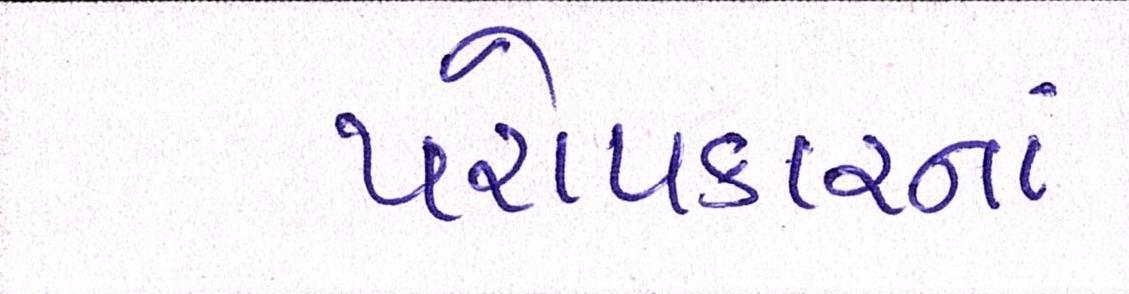 પરોપકારનાં